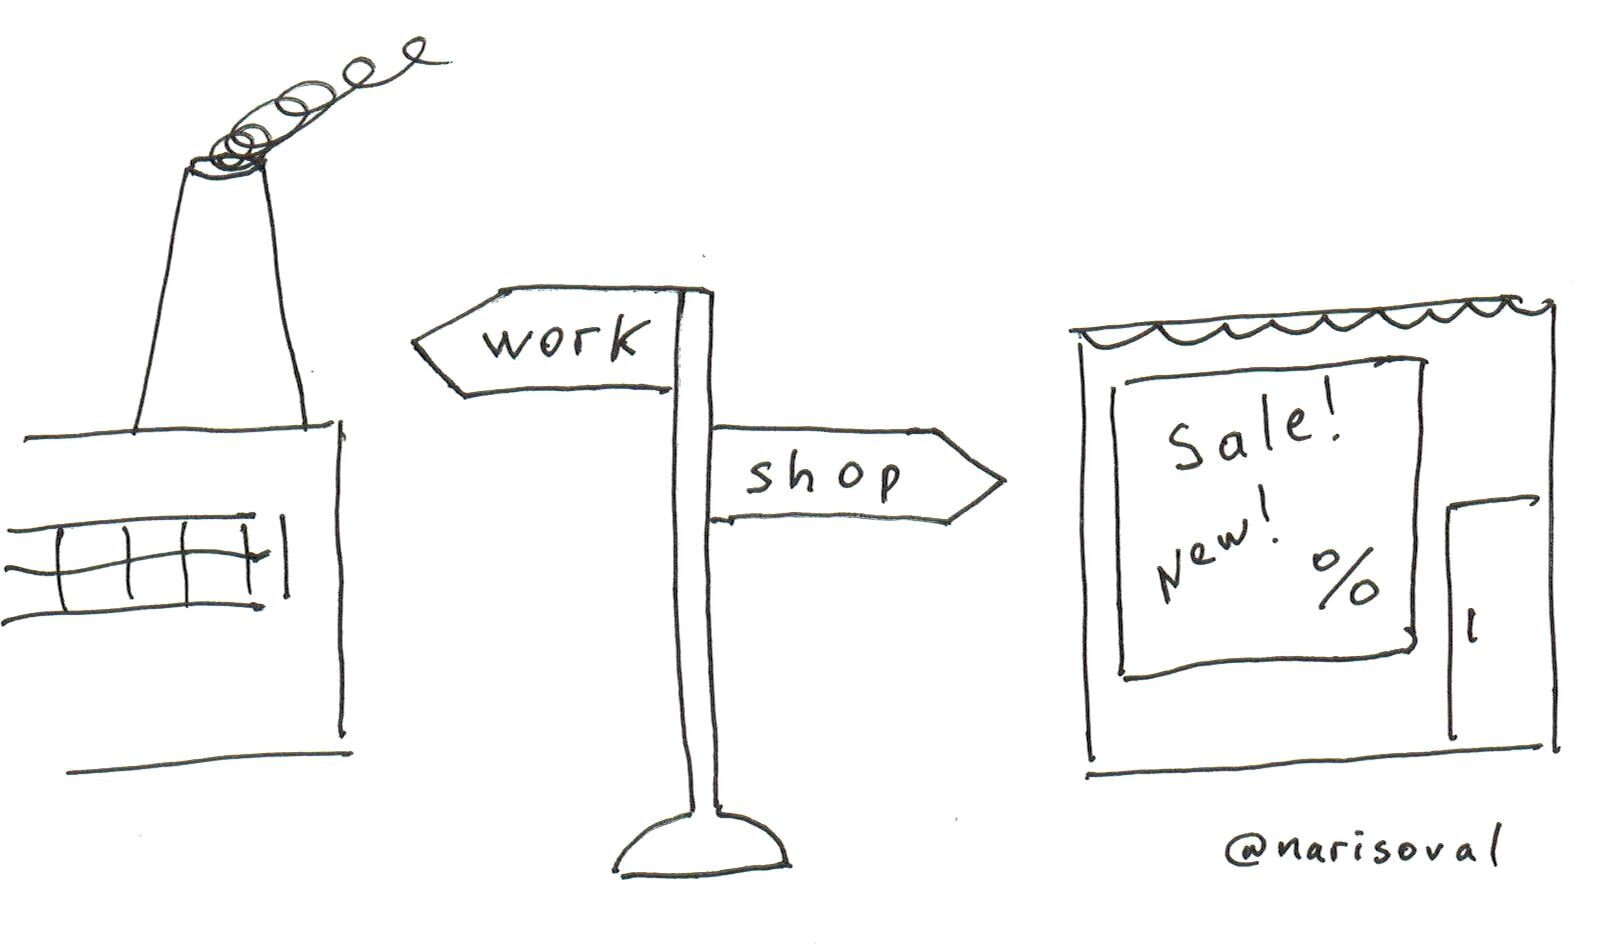 work
shop
Sale!
New!
%
@narisoval